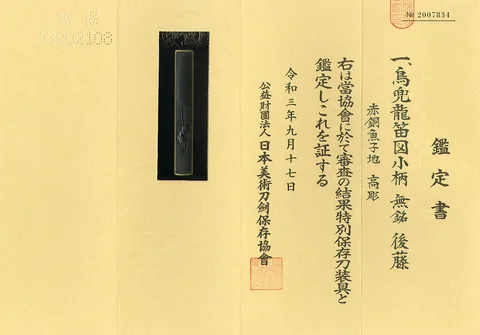 鑑定書
№ 2007834
一、鳥兜龍笛図小柄 無銘 後藤
赤銅魚子地 高彫
右は當協會に於て審査の結果特別保存刀装具と
鑑定しこれを証する
令和三年九月十七日
公益財團法人 日本美術刀劍保存協會